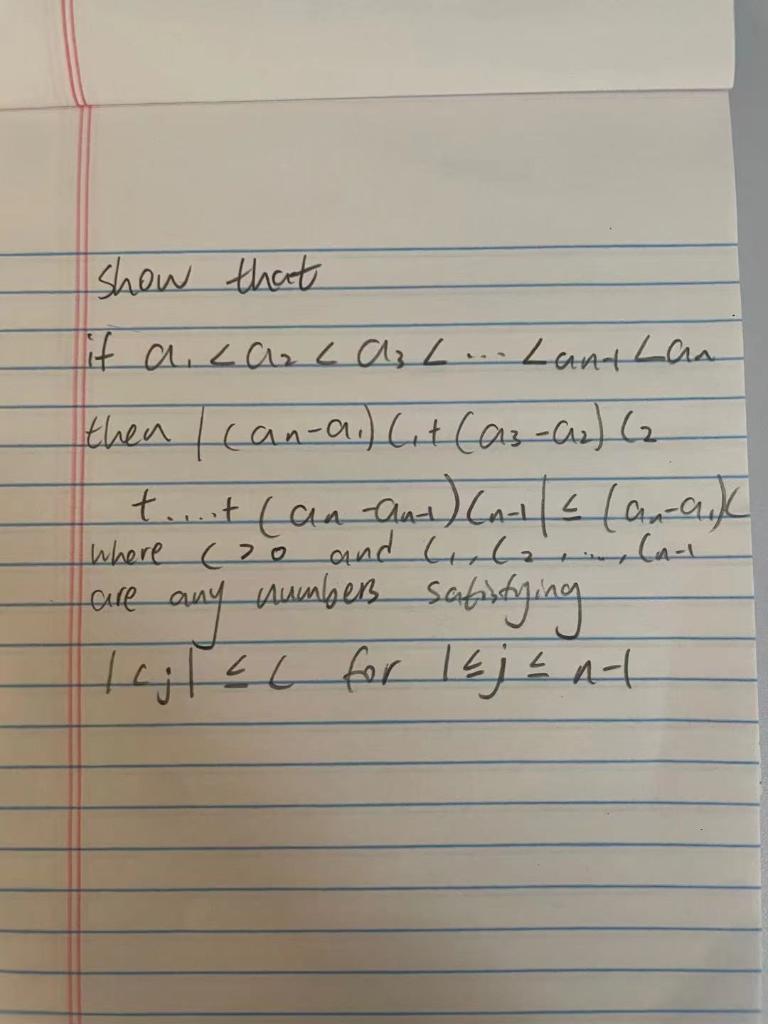 show that
if a₁ < a₂ < a₃ < ... < an-1 < an
then |(an-a₁)C₁+(a₃-a₂)C₂
+....+(an-an-1)Cn-1| ≤ (an-a₁)C
where C>0 and C₁, C₂, ..., Cn-1
are any numbers satisfying
|cj| ≤ C for 1≤j≤n-1